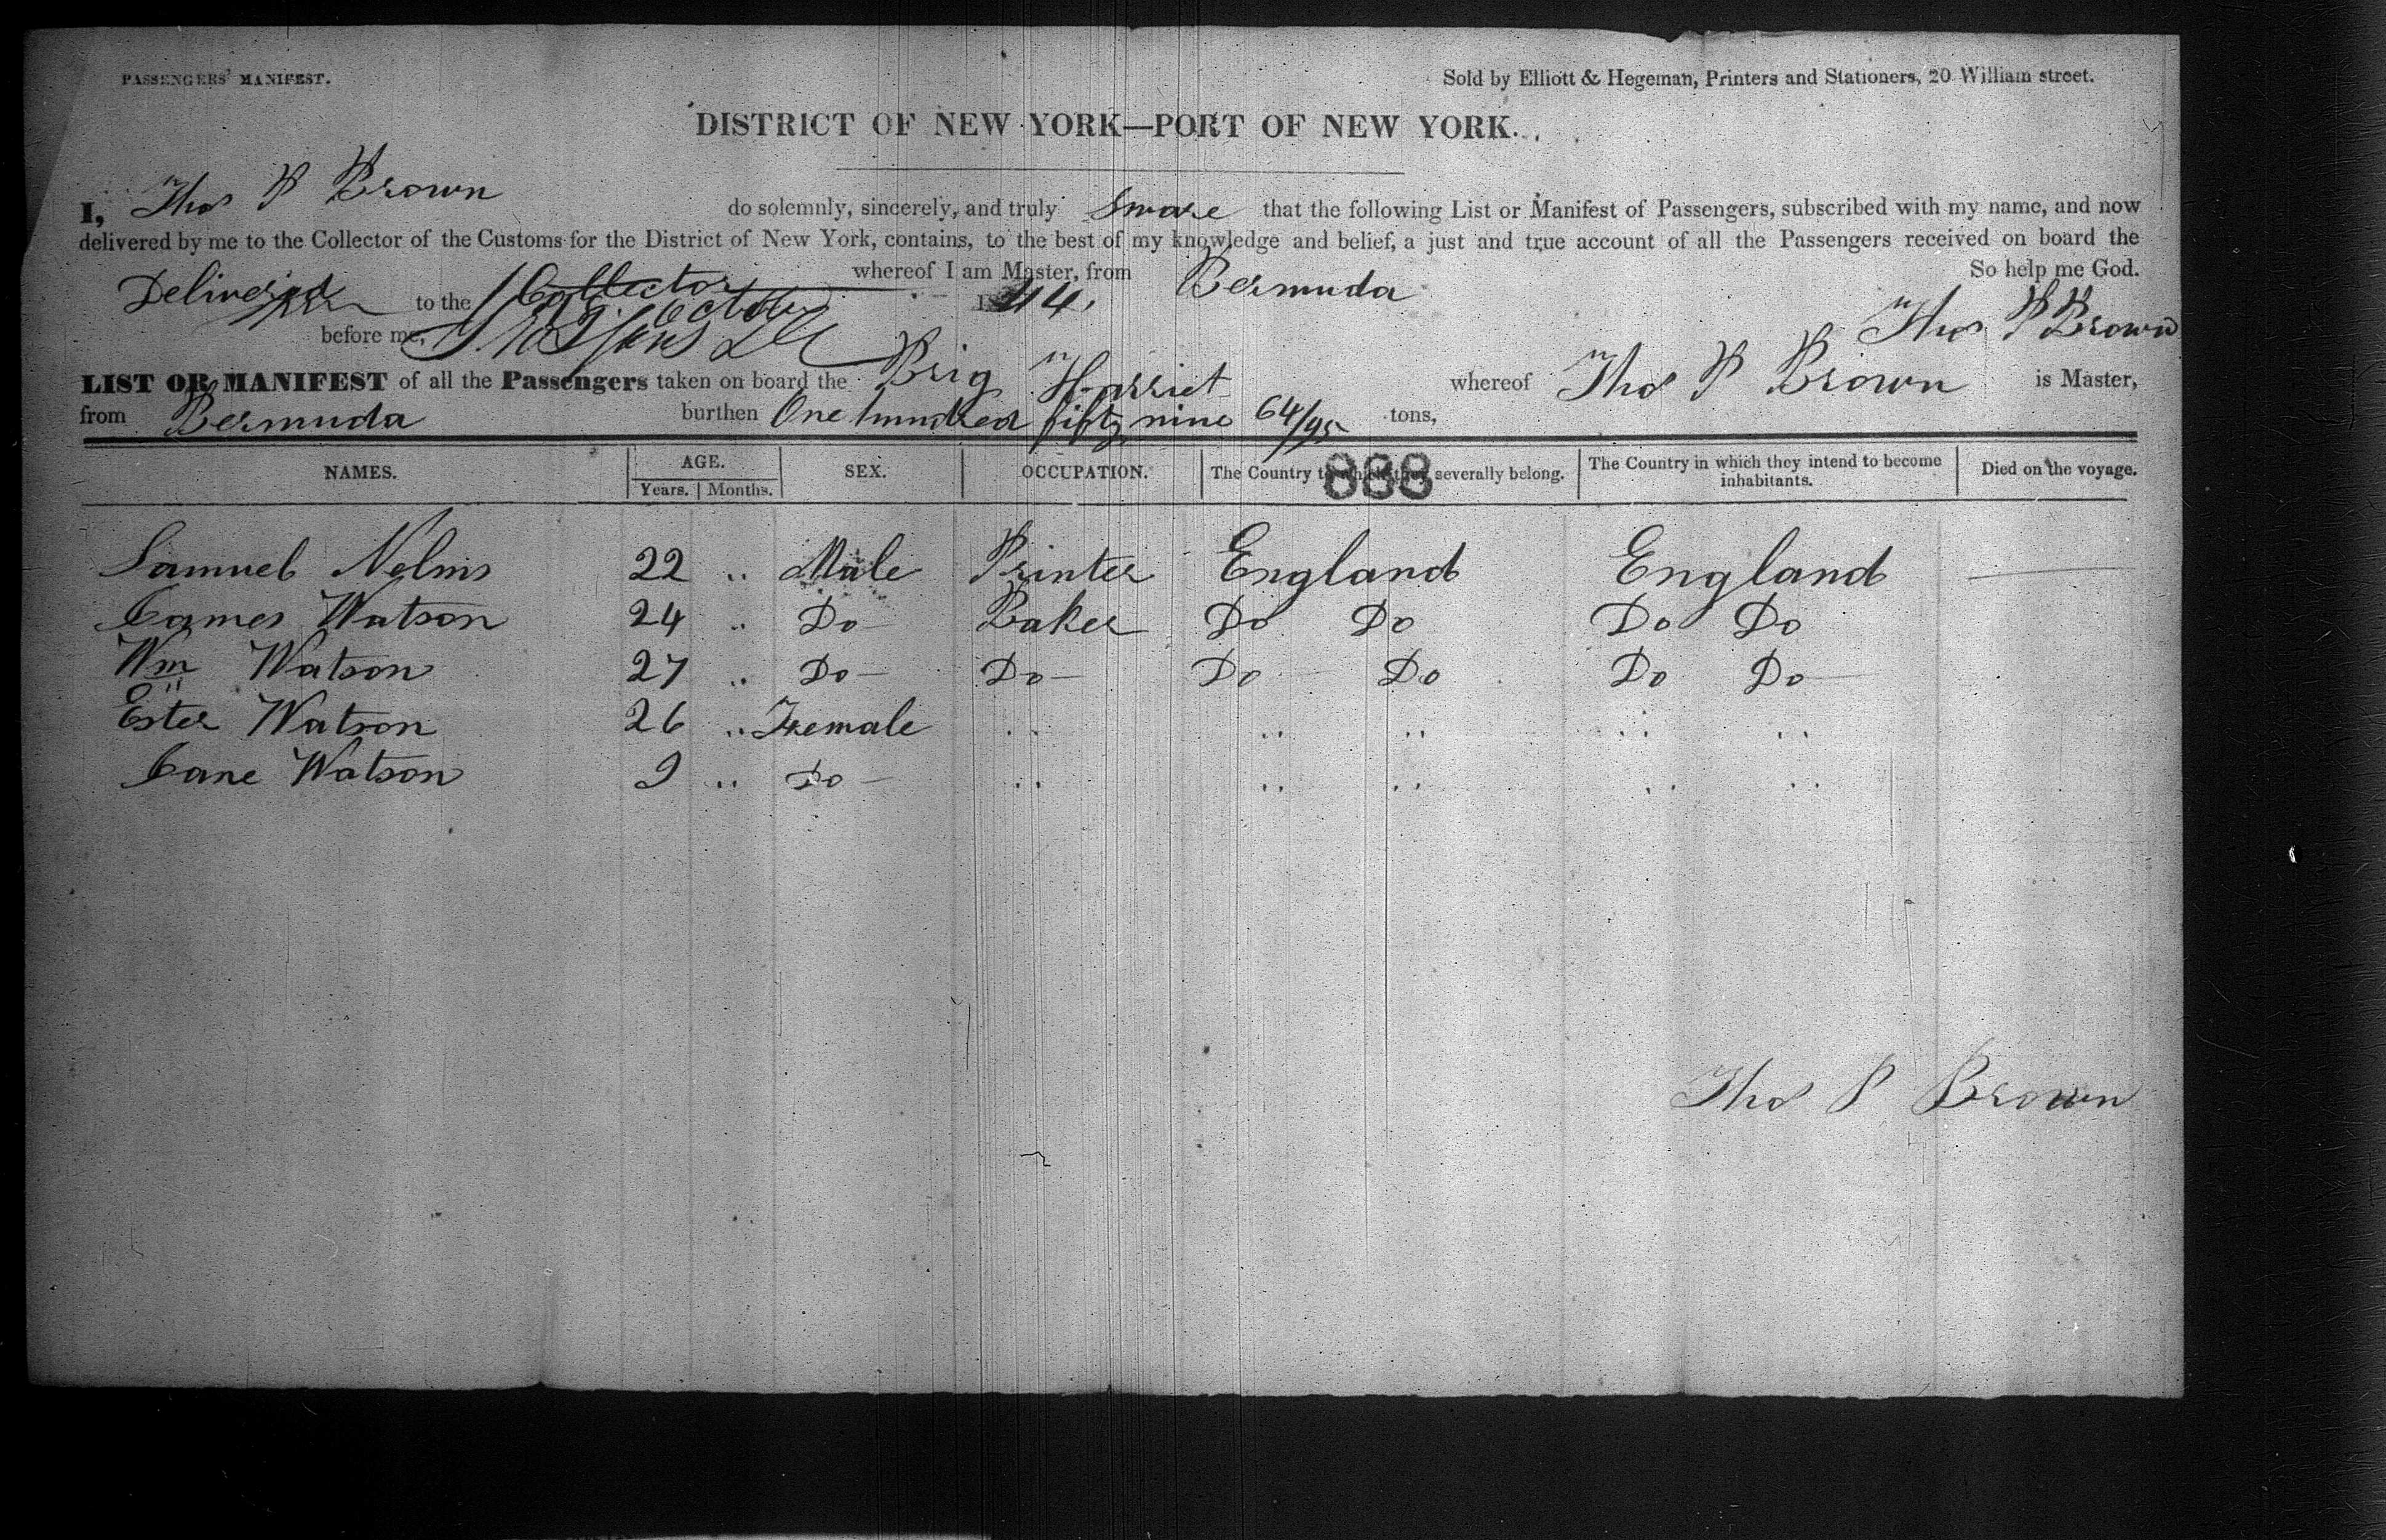 PASSENGERS' MANIFEST. Sold by Elliott & Hegeman, Printers and Stationers, 20 William street.
DISTRICT OF NEW YORK—PORT OF NEW YORK.
I, Thos P Brown do solemnly, sincerely, and truly Sware that the following List or Manifest of Passengers, subscribed with my name, and now
delivered by me to the Collector of the Customs for the District of New York, contains, to the best of my knowledge and belief, a just and true account of all the Passengers received on board the
whereof I am Master, from Bermuda So help me God.
Delivered to the Collector October 1844. Thos P Brown
before me,
LIST OR MANIFEST of all the Passengers taken on board the Brig Harriet whereof Thos P Brown is Master,
from Bermuda burthen One hundred fifty nine 64/95 tons,
NAMES. AGE. Years. Months. SEX. OCCUPATION. The Country to which they severally belong. The Country in which they intend to become inhabitants. Died on the voyage.
888
Samuel Nelms 22 " Male Printer England England
James Watson 24 " Do Baker Do Do Do Do
Wm Watson 27 " Do Do Do Do Do Do
Ester Watson 26 " Female " " " " "
Jane Watson 9 " Do " " " " "
Thos P Brown